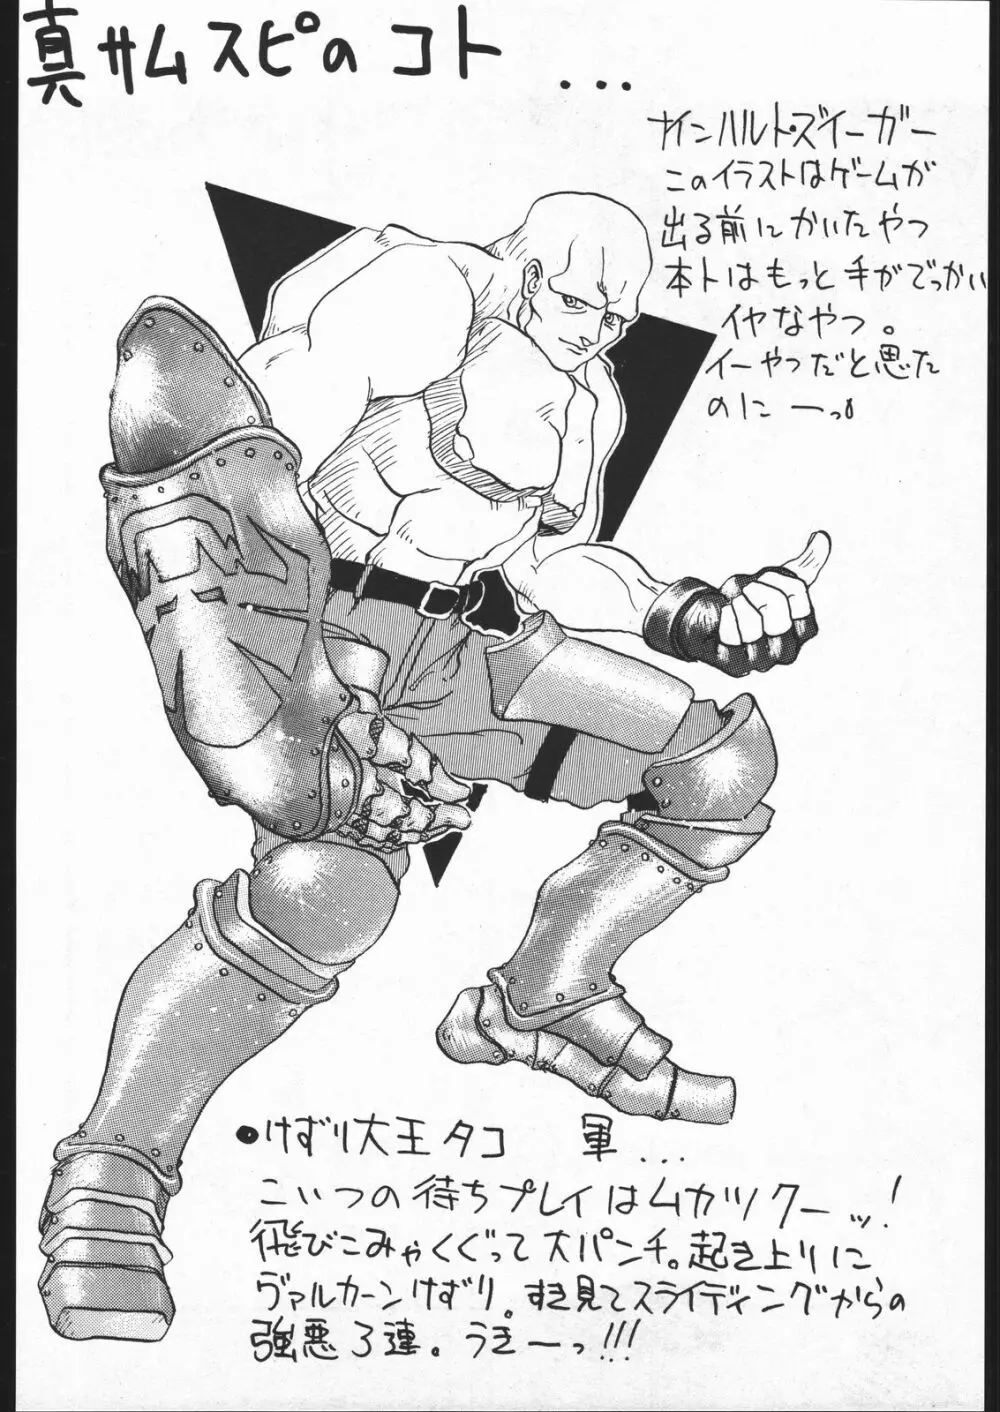 真サムスピのコト...
ナインハルト・ズィーガー
このイラストはゲームが
出る前にかいたやつ
本トはもっと手がでっかい
イヤなやつ。
イーやつだと思たの
にーっ。
●けずり大王タコ 軍...
こいつの待ちプレイはムカツクーッ!
飛びこみゃくぐって大パンチ。起き上りに
ヴァルカーンけずり。すき見てスライディングからの
強悪3連。うぎーっ!!!